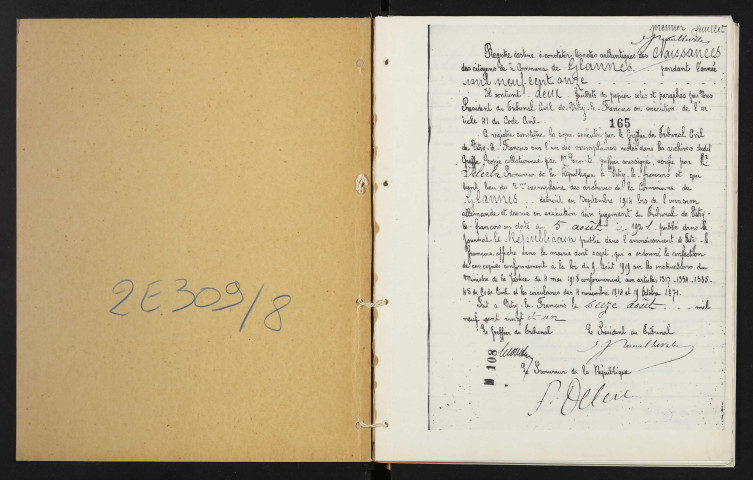 2E 309/8
premier feuillet
Registre destiné à constater les actes authentiques des Naissances
des citoyens de la Commune de Glannes pendant l'année
mil neuf cent onze
Il contient deux feuillets de papier cotés et paraphés par Nous
Président du Tribunal Civil de Vitry-le-François en exécution de l'ar-
ticle 41 du Code Civil.
165
Ce registre constitue la copie exécutée par le Greffier du Tribunal Civil
de Vitry-le-François sur l'un des exemplaires restés dans les archives dudit
Greffe. Copie collationnée par greffier soussigné, vérifiée par Mr
Procureur de la République à Vitry-le-François et qui
tient lieu du 2me exemplaire des archives de la Commune de
Glannes détruit en Septembre 1914 lors de l'invasion
allemande et dressé en exécution d'un jugement du tribunal de Vitry-
le-François en date du 5 août 1921, publié dans le
Journal le Républicain publié dans l'arrondissement de Vitry-le-
François, affiché dans la mairie dont s'agit, qui a ordonné la confection
de ces copies conformément à la loi du 1919 sur les instructions du
Ministre de la Justice du 4 mai 1918 conformément aux articles 1317-1334-1335-
45 du Code Civil et les circulaires des 4 novembre 1814 et 19 Octobre 1871.
Fait à Vitry-le-François le seize août mil
neuf cent vingt et un
Le Greffier du Tribunal Le Président du Tribunal
108
Le Procureur de la République